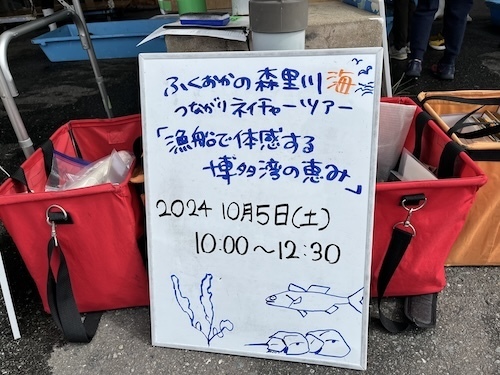 ふくおかの森里川海
つながりネイチャーツアー
「漁船で体感する
博多湾の恵み」
2024 10月5日(土)
10:00〜12:30